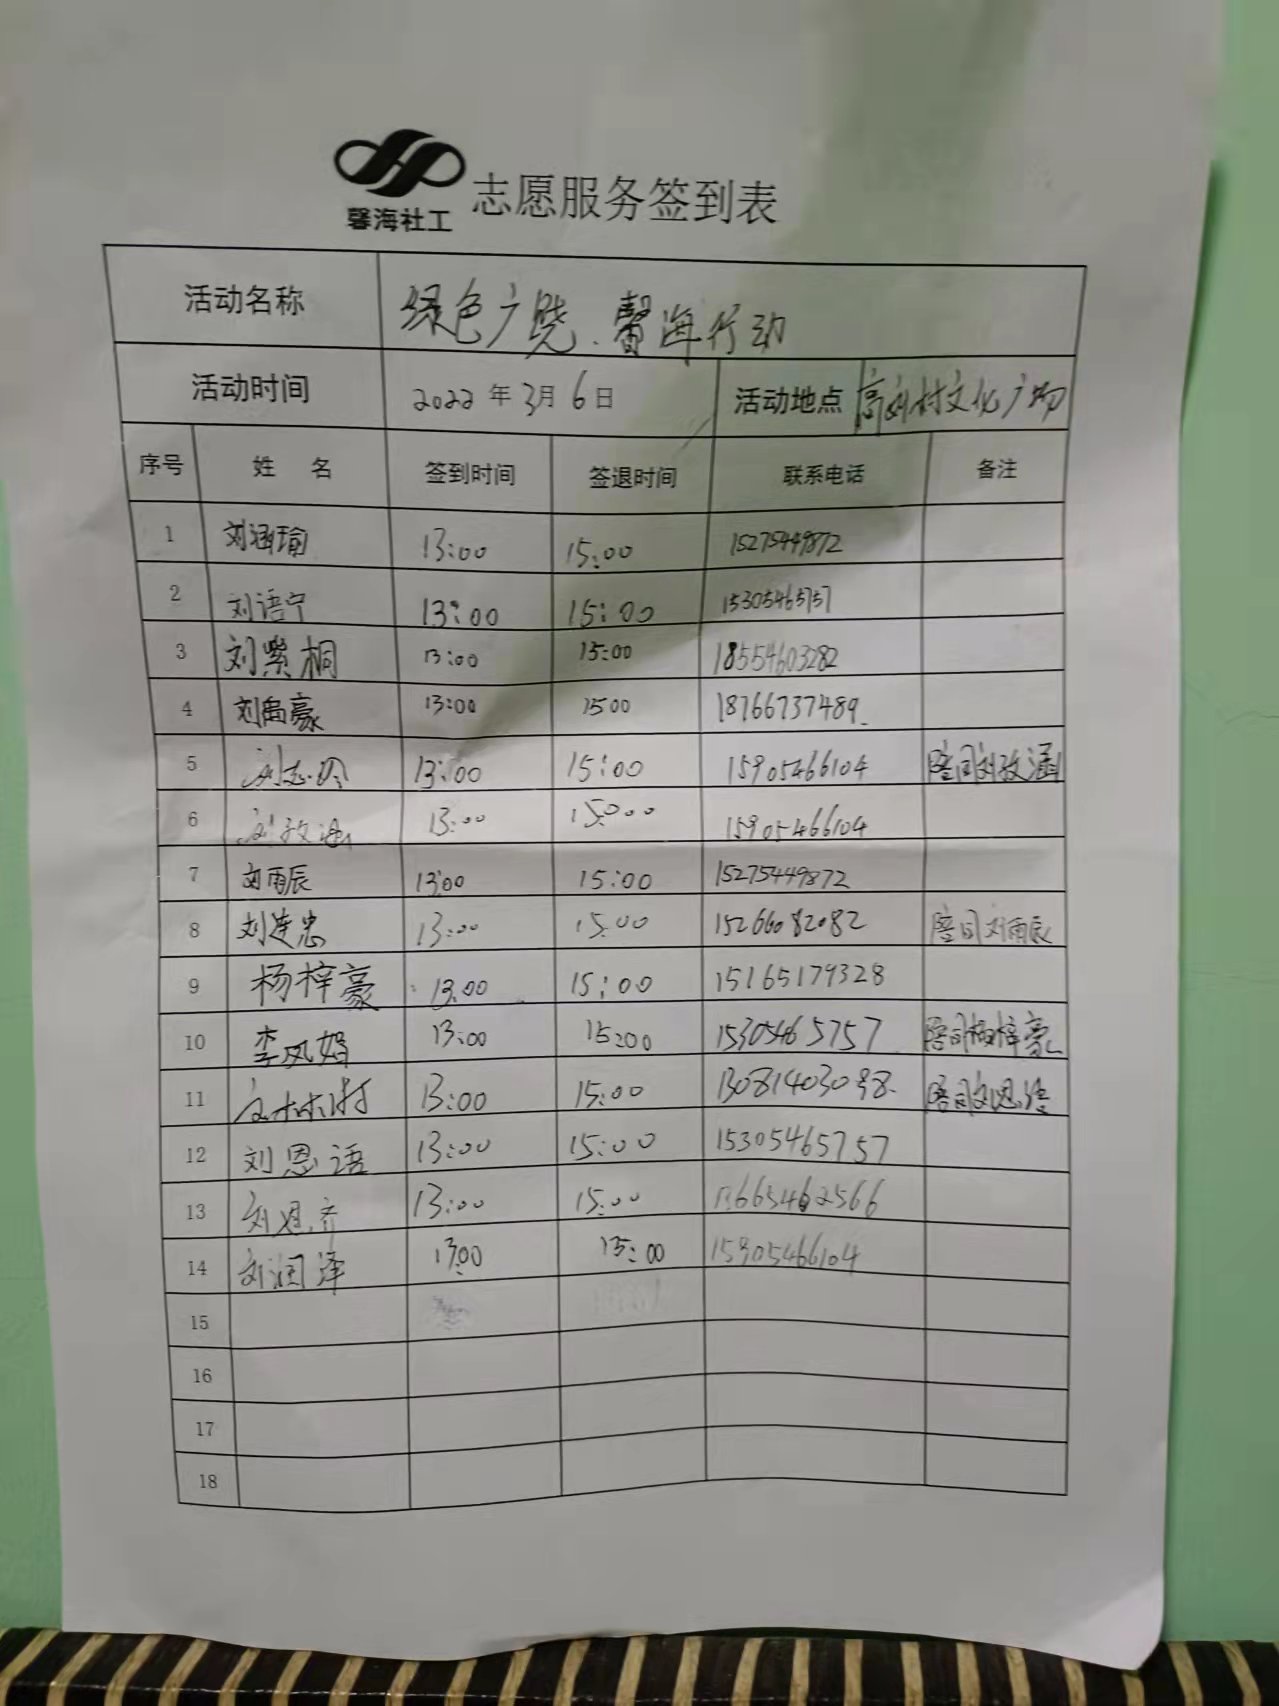 馨海社工 志愿服务签到表
活动名称 绿色广饶.馨海行动
活动时间 2022年3月6日 活动地点 高刘村文化广场
序号 姓 名 签到时间 签退时间 联系电话 备注
1 刘涵瑜 13:00 15:00 15275449872
2 刘语宁 13:00 15:00 15305465757
3 刘紫桐 13:00 15:00 18554603282
4 刘禹豪 13:00 1500 18766737489
5 刘志 13:00 15:00 15905466104 陪同刘孜涵
6 刘孜涵 13:00 15:00 15905466104
7 刘雨辰 13:00 15:00 15275449872
8 刘连忠 13:00 15:00 15266082082 陪同刘雨辰
9 杨梓豪 13:00 15:00 15165179328
10 李凤娟 13:00 15:00 15305465757 陪同杨梓豪
11 13:00 15:00 陪同刘恩语
12 刘恩语 13:00 15:00 15305465757
13 刘恩齐 13:00 15:00
14 刘润泽 13:00 15:00 15905466104
15
16
17
18